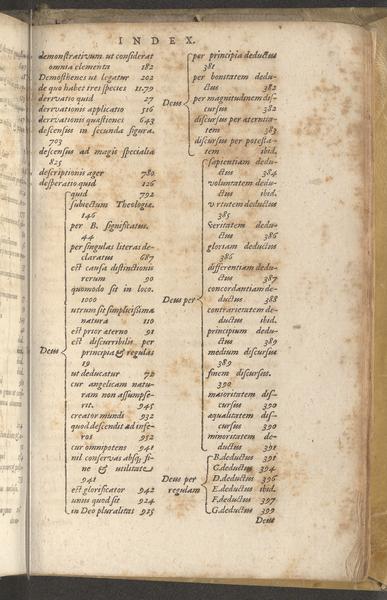 INDEX.
demonstrativum ut considerat
omnia elementa 182
Demosthenes ut legatur 202
de quo habet tres species 1179
derivatio quid 27
derivationis applicatio 516
derivationis quæstiones 643
descensus in secunda figura.
703
descensus ad magis specialia
825
descriptionis ager 780
desperatio quid 126
Deus
quid 792
subiectum Theologiæ.
146
per B. significatus.
44
per singulas literas de-
claratus 687
est causa distinctionis
rerum 90
quomodo sit in loco.
1000
utrum sit simplicissima
natura 110
est prior æterno 91
est discurribilis per
principia & regulas
19
ut deducatur 72
cur angelicam natu-
ram non assumpse-
rit. 945
creator mundi 932
quod descendit ad infe-
ros 952
cur omnipotens 941
nil conservat absq; fi-
ne & utilitate
941
est glorificator 942
unus quod sit 924
in Deo pluralitas 925
Deus
per principia deductus
381
per bonitatem dedu-
ctus 382
per magnitudinem dis-
cursus 382
discursus per æternita-
tem 383
discursus per potesta-
tem ibid.
Deus per
sapientiam dedu-
ctus 384
voluntatem dedu-
ctus ibid.
virtutem deductus
385
veritatem dedu-
ctus 386
gloriam deductus
386
differentiam dedu-
ctus 387
concordantiam de-
ductus 388
contrarietatem de-
ductus ibid.
principium dedu-
ctus 389
medium discursus
389
finem discursus.
390
maioritatem dis-
cursus 390
æqualitatem dis-
cursus 390
minoritatem de-
ductus 391
Deus per
regulam
B. deductus 391
C. deductus 394
D. deductus 396
E. deductus ibid.
F. deductus 397
G. deductus 399
Deus